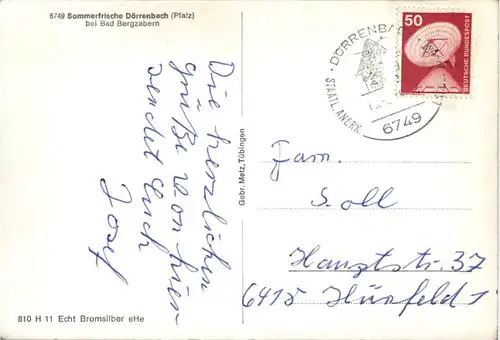 6749 Sommerfrische Dörrenbach (Pfalz)
bei Bad Bergzabern
Die herzlichen
Grüße von hier
sendet Euch
Josef
810 H 11 Echt Bromsilber eHe
Gebr. Metz, Tübingen
DÖRRENBAC
STAATL. ANERK.
6749
50
DEUTSCHE BUNDESPOST
Fam.
Soll
Hauptstr. 37
6415 Hünfeld 1